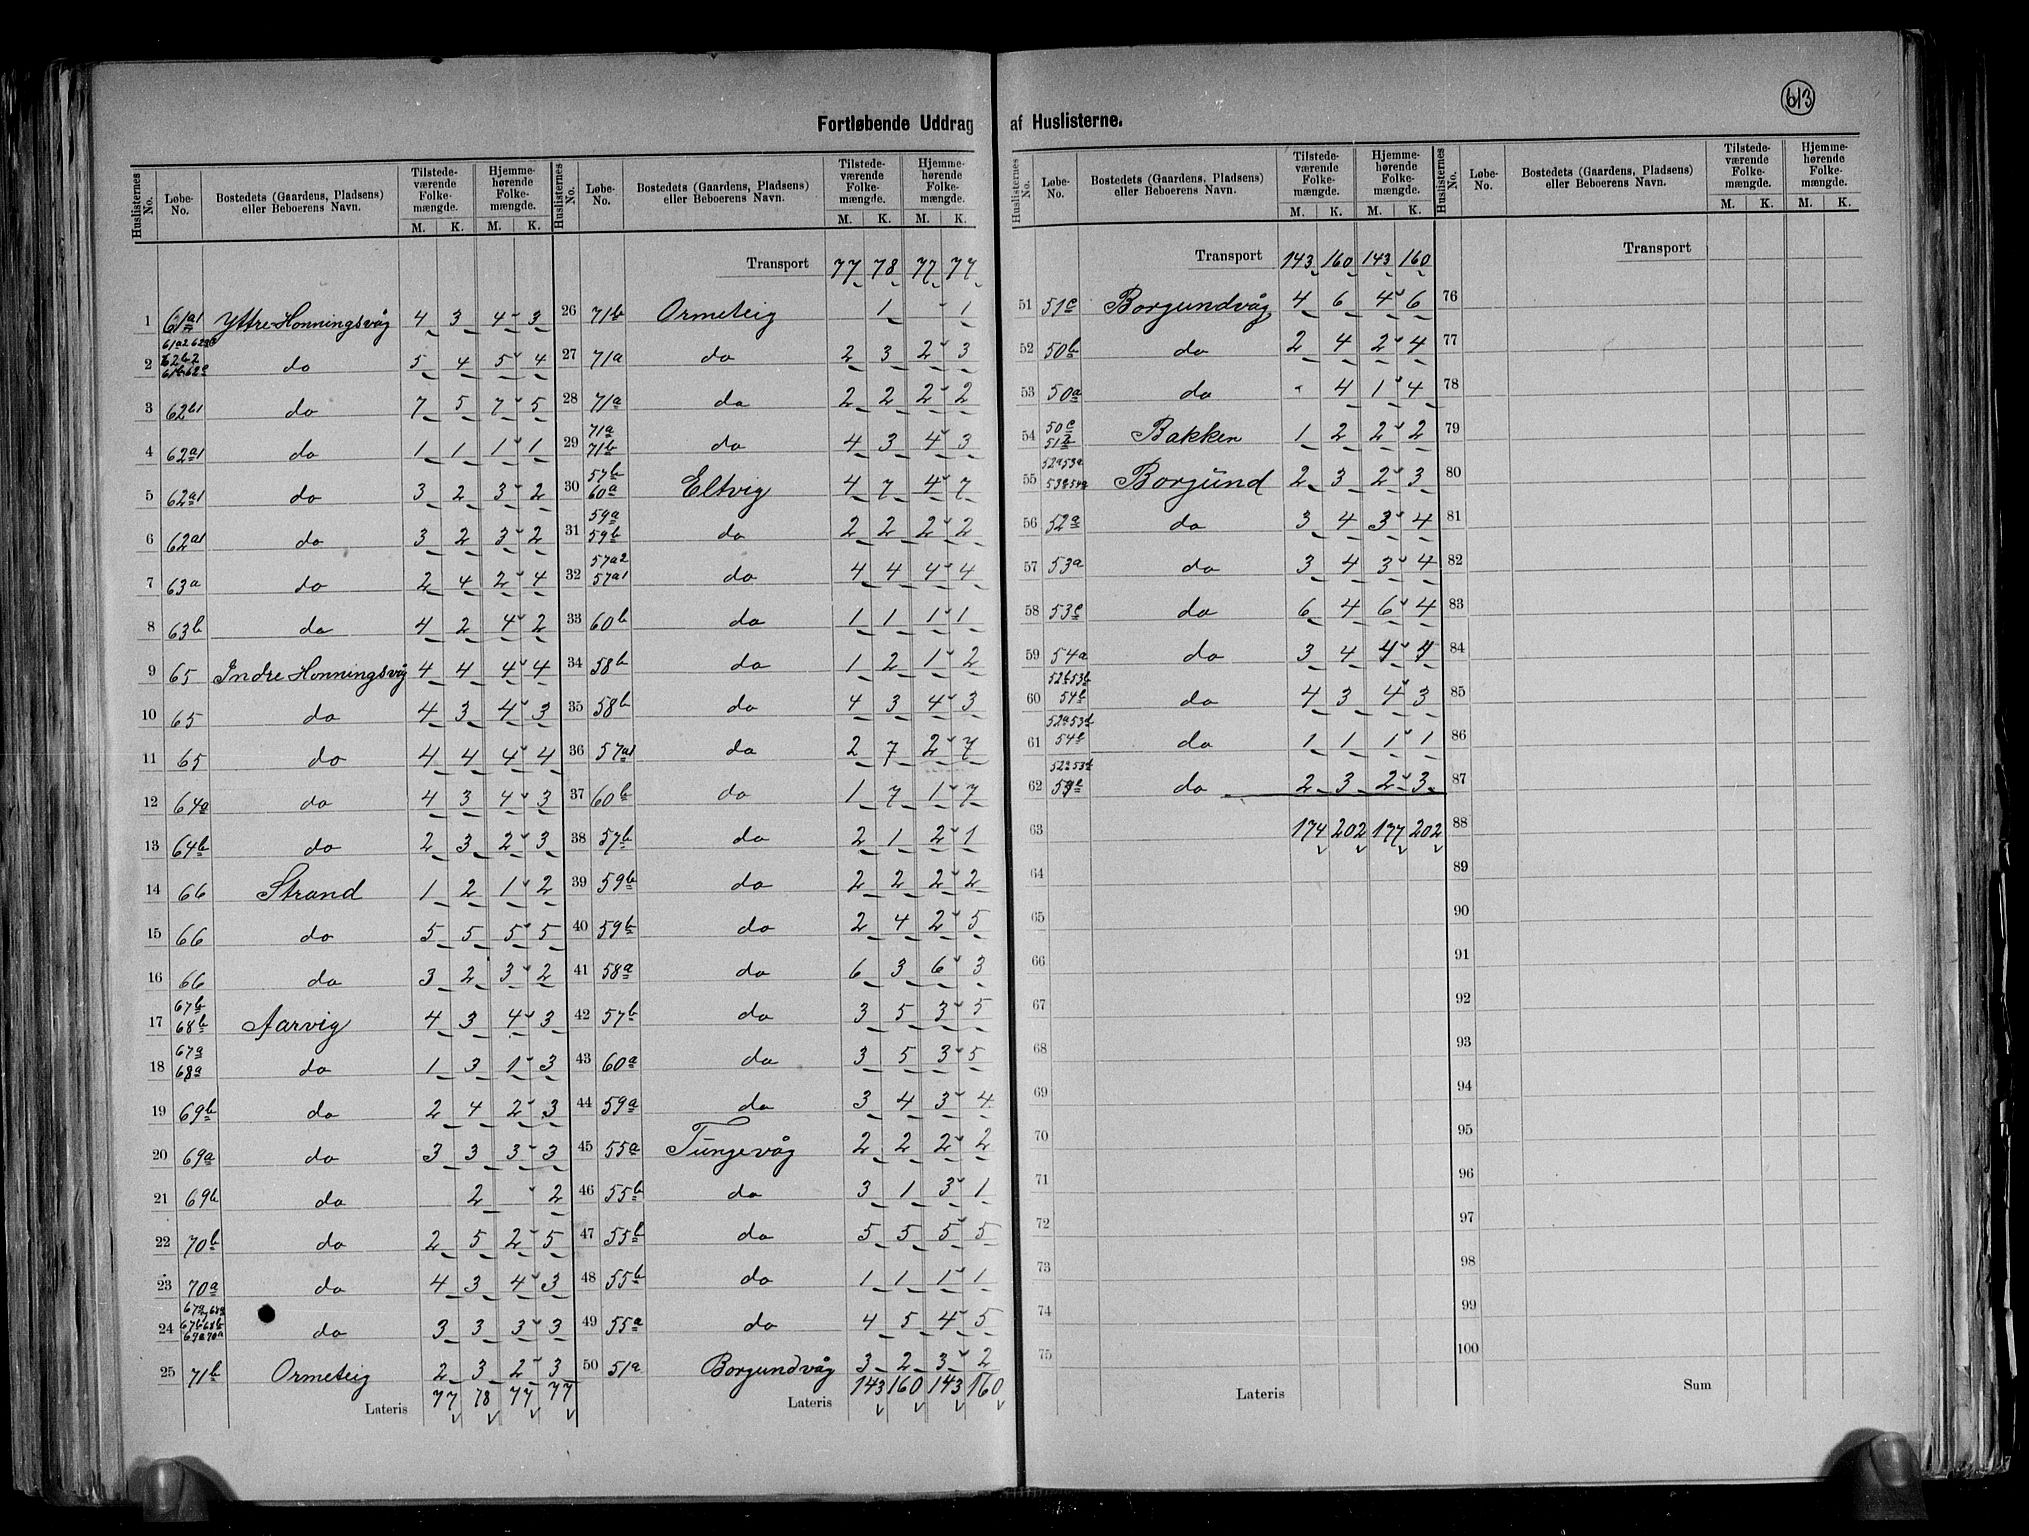 613
Fortløbende Uddrag af Huslisterne.
Huslisternes No. Løbe-No. Bostedets (Gaardens, Pladsens) eller Beboerens Navn. Tilstedeværende Folkemængde. M. K. Hjemmehørende Folkemængde. M. K.
1 61a1 Yttre Honningsvåg 4 3 4 3
2 do 5 4 5 4
3 62b1 do 7 5 7 5
4 62a1 do 1 1 1 1
5 62a1 do 3 2 3 2
6 62a1 do 3 2 3 2
7 63a do 2 4 2 4
8 63b do 4 2 4 2
9 65 Indre Honningsvåg 4 4 4 4
10 65 do 4 3 4 3
11 65 do 4 4 4 4
12 64a do 4 3 4 3
13 64b do 2 3 2 3
14 66 Strand 1 2 1 2
15 66 do 5 5 5 5
16 66 do 3 2 3 2
17 67b 68b Aarvig 4 3 4 3
18 67a 68a do 1 3 1 3
19 69b do 2 4 2 3
20 69a do 3 3 3 3
21 69b do 2 2
22 70b do 2 5 2 5
23 70a do 4 3 4 3
24 do 3 3 3 3
25 71b Ormeteig 2 3 2 3
Lateris 77 78 77 77
Huslisternes No. Løbe-No. Bostedets (Gaardens, Pladsens) eller Beboerens Navn. Tilstedeværende Folkemængde. M. K. Hjemmehørende Folkemængde. M. K.
Transport 77 78 77 77
26 71b Ormeteig 1 1
27 71a do 2 3 2 3
28 71a do 2 2 2 2
29 71a 71b do 4 3 4 3
30 57b 60a Eltvig 4 7 4 7
31 59a 59b do 2 2 2 2
32 57a2 57a1 do 4 4 4 4
33 60b do 1 1 1 1
34 58b do 1 2 1 2
35 58b do 4 3 4 3
36 57a1 do 2 7 2 7
37 60b do 1 7 1 7
38 57b do 2 1 2 1
39 59b do 2 2 2 2
40 59b do 2 4 2 5
41 58a do 6 3 6 3
42 57b do 3 5 3 5
43 60a do 3 5 3 5
44 59a do 3 4 3 4
45 55a Tungevåg 2 2 2 2
46 55b do 3 1 3 1
47 55b do 5 5 5 5
48 55b do 1 1 1 1
49 55a do 4 5 4 5
50 51a Borgundvåg 3 2 3 2
Lateris 143 160 143 160
Huslisternes No. Løbe-No. Bostedets (Gaardens, Pladsens) eller Beboerens Navn. Tilstedeværende Folkemængde. M. K. Hjemmehørende Folkemængde. M. K.
Transport 143 160 143 160
51 51c Borgundvåg 4 6 4 6
52 50b do 2 4 2 4
53 50a do 4 1 4
54 50c 51b Bakken 1 2 2 2
55 Borgund 2 3 2 3
56 52a do 3 4 3 4
57 53a do 3 4 3 4
58 53c do 6 4 6 4
59 54a do 3 4 4 4
60 52b53b 54b do 4 3 4 3
61 do 1 1 1 1
62 do 2 3 2 3
63 174 202 177 202
64
65
66
67
68
69
70
71
72
73
74
75
Lateris
Huslisternes No. Løbe-No. Bostedets (Gaardens, Pladsens) eller Beboerens Navn. Tilstedeværende Folkemængde. M. K. Hjemmehørende Folkemængde. M. K.
Transport
76
77
78
79
80
81
82
83
84
85
86
87
88
89
90
91
92
93
94
95
96
97
98
99
100
Sum